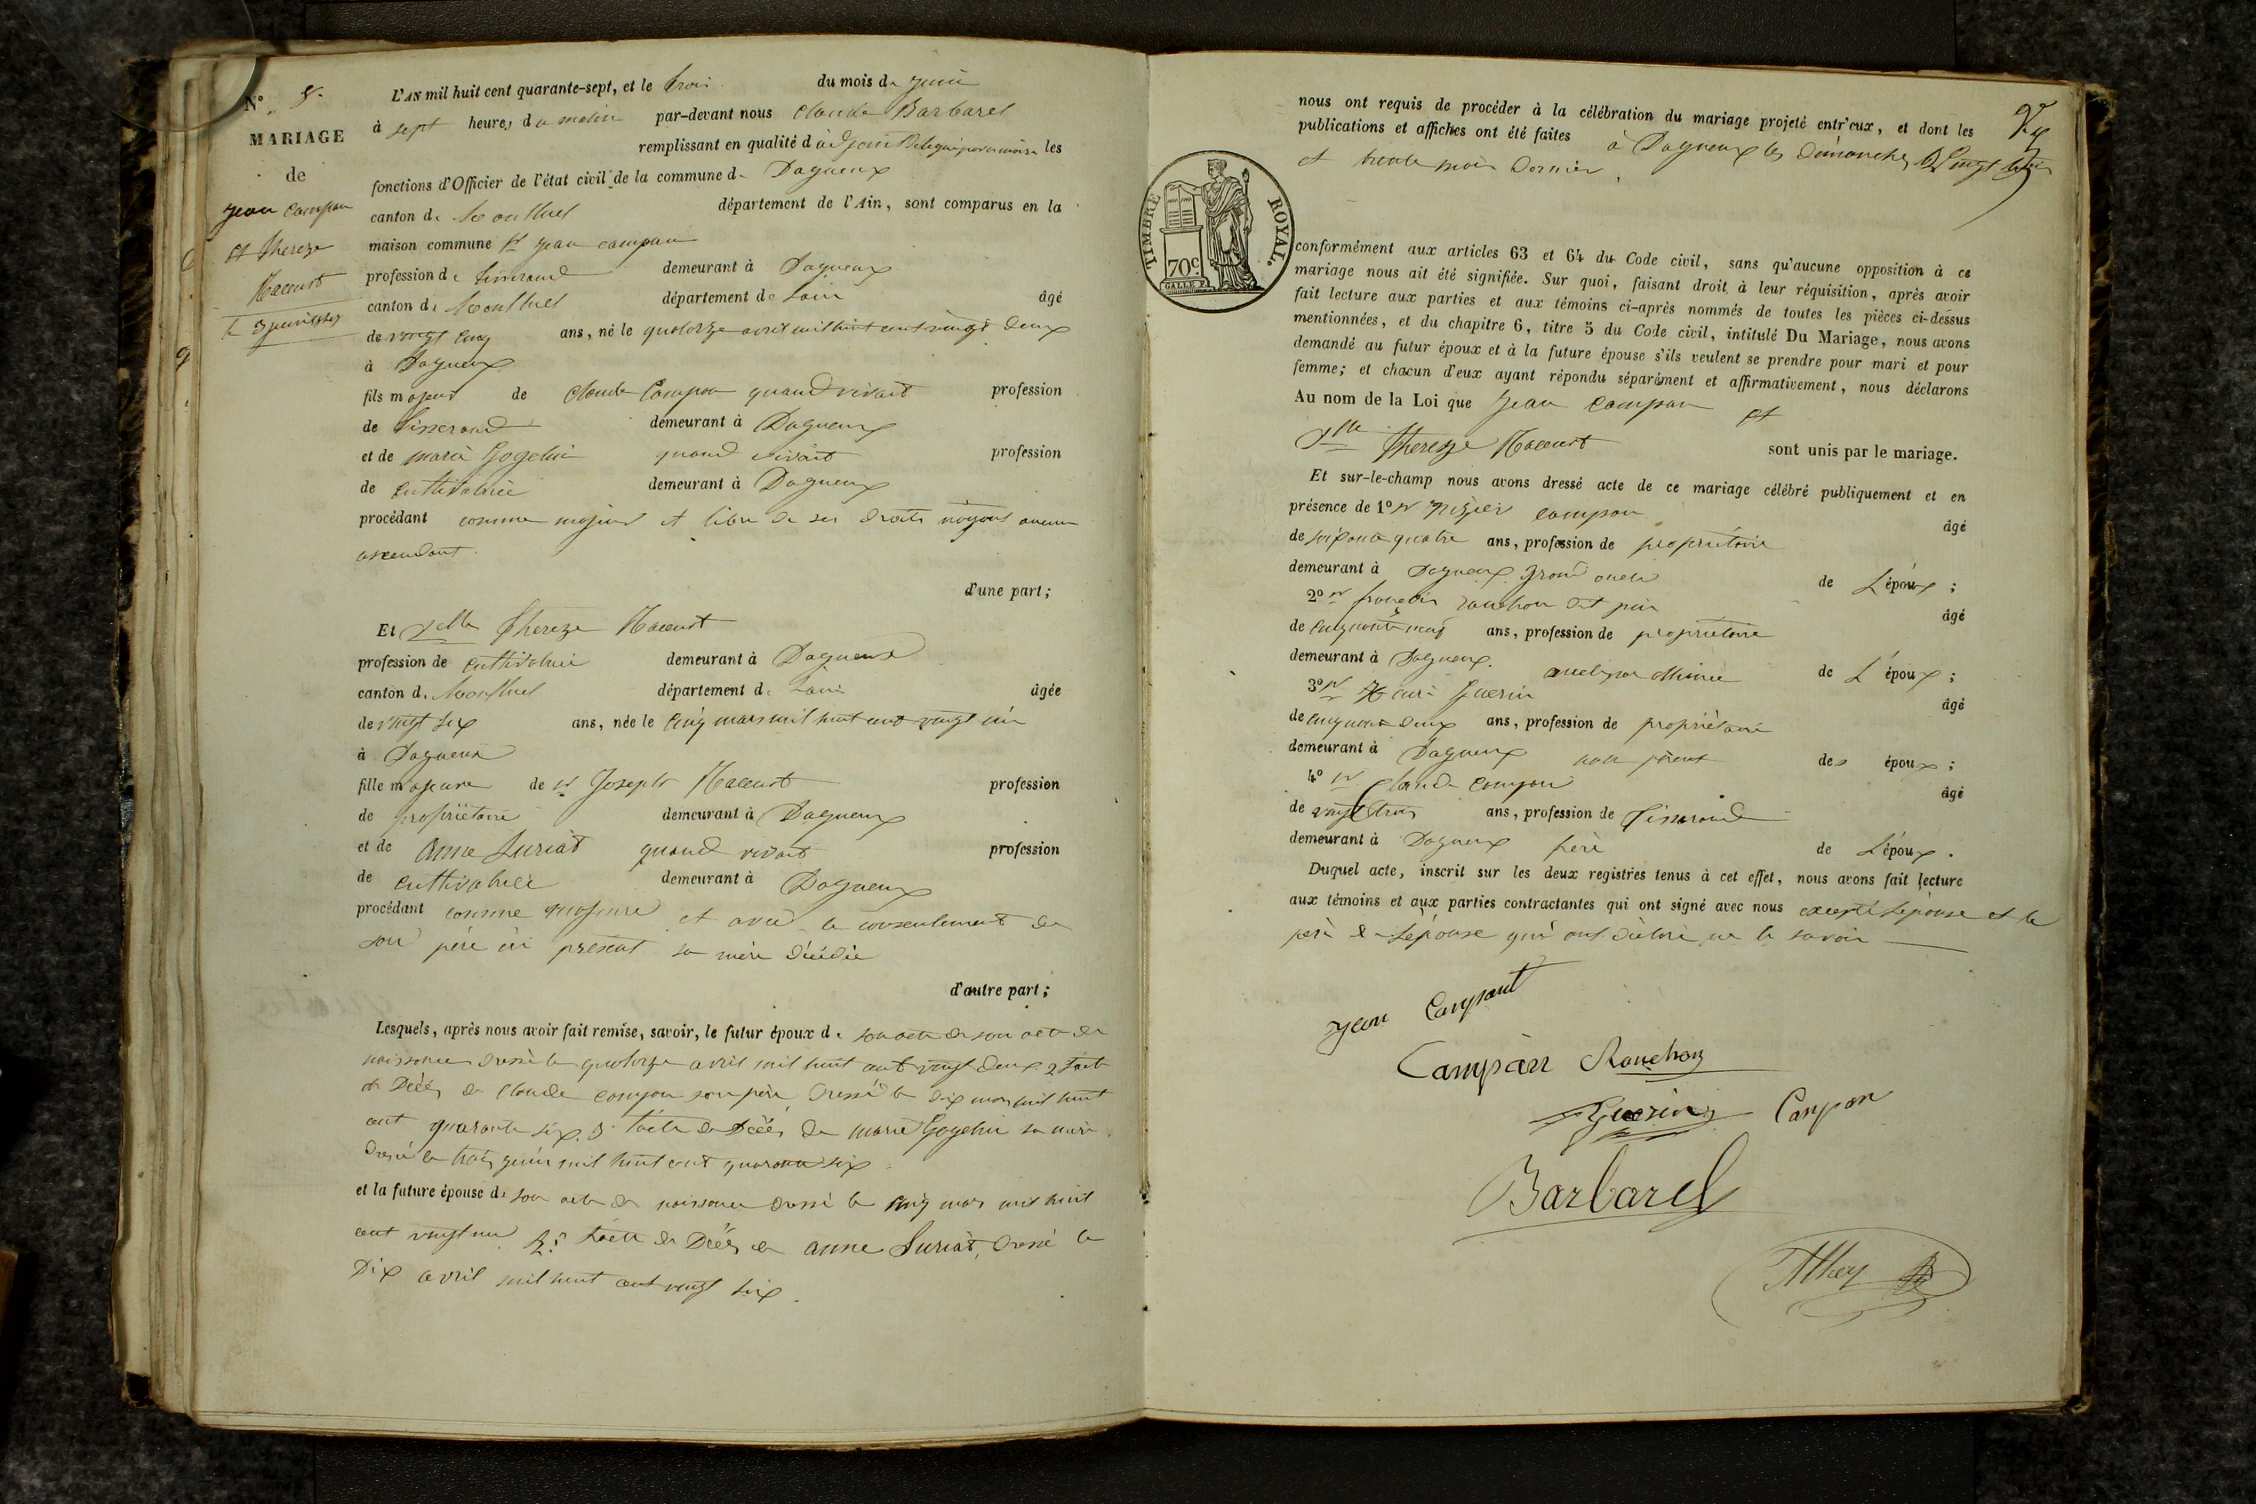 N° 8.
MARIAGE
de
jean Campan
et thereze
Macourt
L'AN mil huit cent quarante-sept, et le trois du mois de juin
à sept heures du matin par-devant nous Claude Barbarel
remplissant en qualité d'adjoint les
fonctions d'Officier de l'état civil de la commune de Dagneux
canton de Montluel département de l'Ain, sont comparus en la
maison commune Sr jean campan
profession de tisserand demeurant à Dagneux
canton de Montluel département de Lain âgé
de vingt cinq ans, né le quatorze avril mil huit cent vingt deux
à Dagneux
fils majeur de Claude Campan quand vivait profession
de tisserand demeurant à Dagneux
et de marie Gogelin quand vivait profession
de cultivatrice demeurant à Dagneux
procédant comme majeur et libre de ses droits n'ayant aucun
ascendant.
d'une part;
Et Delle Thereze Macourt
profession de cultivatrice demeurant à Dagneux
canton de Montluel département de Lain âgée
de vingt six ans, née le cinq mars mil huit cent vingt un
à Dagneux
fille majeure de Sr Joseph Macourt profession
de propriétaire demeurant à Dagneux
et de Anne Suriat quand vivait profession
de cultivatrice demeurant à Dagneux
procédant comme majeure et avec le consentement de
son père ici présent sa mère décédée
d'autre part;
Lesquels, après nous avoir fait remise, savoir, le futur époux de son acte de son acte de
naissance dressé le quatorze avril mil huit cent vingt deux 2 l'acte
de Décès de Claude campan son père, dressé le dix mars mil huit
cent quarante six. 3 l'acte de Décès de marie Gogelin sa mère
dressé le trois juin mil huit cent quarante six
et la future épouse de son acte de naissance dressé le cinq mars mil huit
cent vingt un 2° l'acte de Décès de anne Suriat, dressé le
Dix avril mil huit cent vingt six.
nous ont requis de procéder à la célébration du mariage projeté entr'eux, et dont les
publications et affiches ont été faites à Dagneux les dimanches vingt trois
et trente mai dernier.
TIMBRE ROYAL.
70c
conformément aux articles 63 et 64 du Code civil, sans qu'aucune opposition à ce
mariage nous ait été signifiée. Sur quoi, faisant droit à leur réquisition, après avoir
fait lecture aux parties et aux témoins ci-après nommés de toutes les pièces ci-dessus
mentionnées, et du chapitre 6, titre 5 du Code civil, intitulé Du Mariage, nous avons
demandé au futur époux et à la future épouse s'ils veulent se prendre pour mari et pour
femme; et chacun d'eux ayant répondu séparément et affirmativement, nous déclarons
Au nom de la Loi que Jean campan et
Dlle Thereze Macourt sont unis par le mariage.
Et sur-le-champ nous avons dressé acte de ce mariage célébré publiquement et en
présence de 1° Sr nizier campan âgé
de soixante quatre ans, profession de propriétaire
demeurant à Dagneux grand oncle de L'époux;
2° Sr françois Ranchon dit âgé
de cinquante neuf ans, profession de propriétaire
demeurant à Dagneux. oncle par alliance de L'époux;
3° Sr Henri Guerin âgé
de cinquante deux ans, profession de propriétaire
demeurant à Dagneux non parent des époux;
4° Sr Claude campan âgé
de vingt trois ans, profession de Tisserand
demeurant à Dagneux frère de L'époux.
Duquel acte, inscrit sur les deux registres tenus à cet effet, nous avons fait lecture
aux témoins et aux parties contractantes qui ont signé avec nous excepté L'épouse et le
père de L'épouse qui ont déclaré ne le savoir
jean Campant
Campan Ranchon
Guerin Canpan
Barbarel